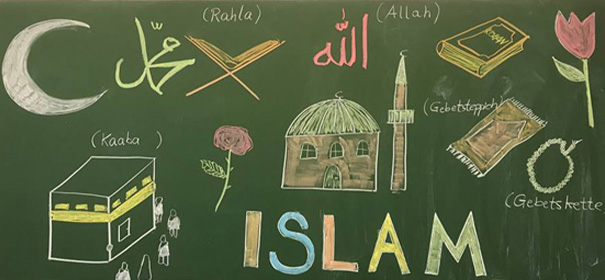 (Rahla)
(Allah)
محمد
الله
KORAN
(Gebetsteppich)
(Kaaba)
(Gebetskette
ISLAM